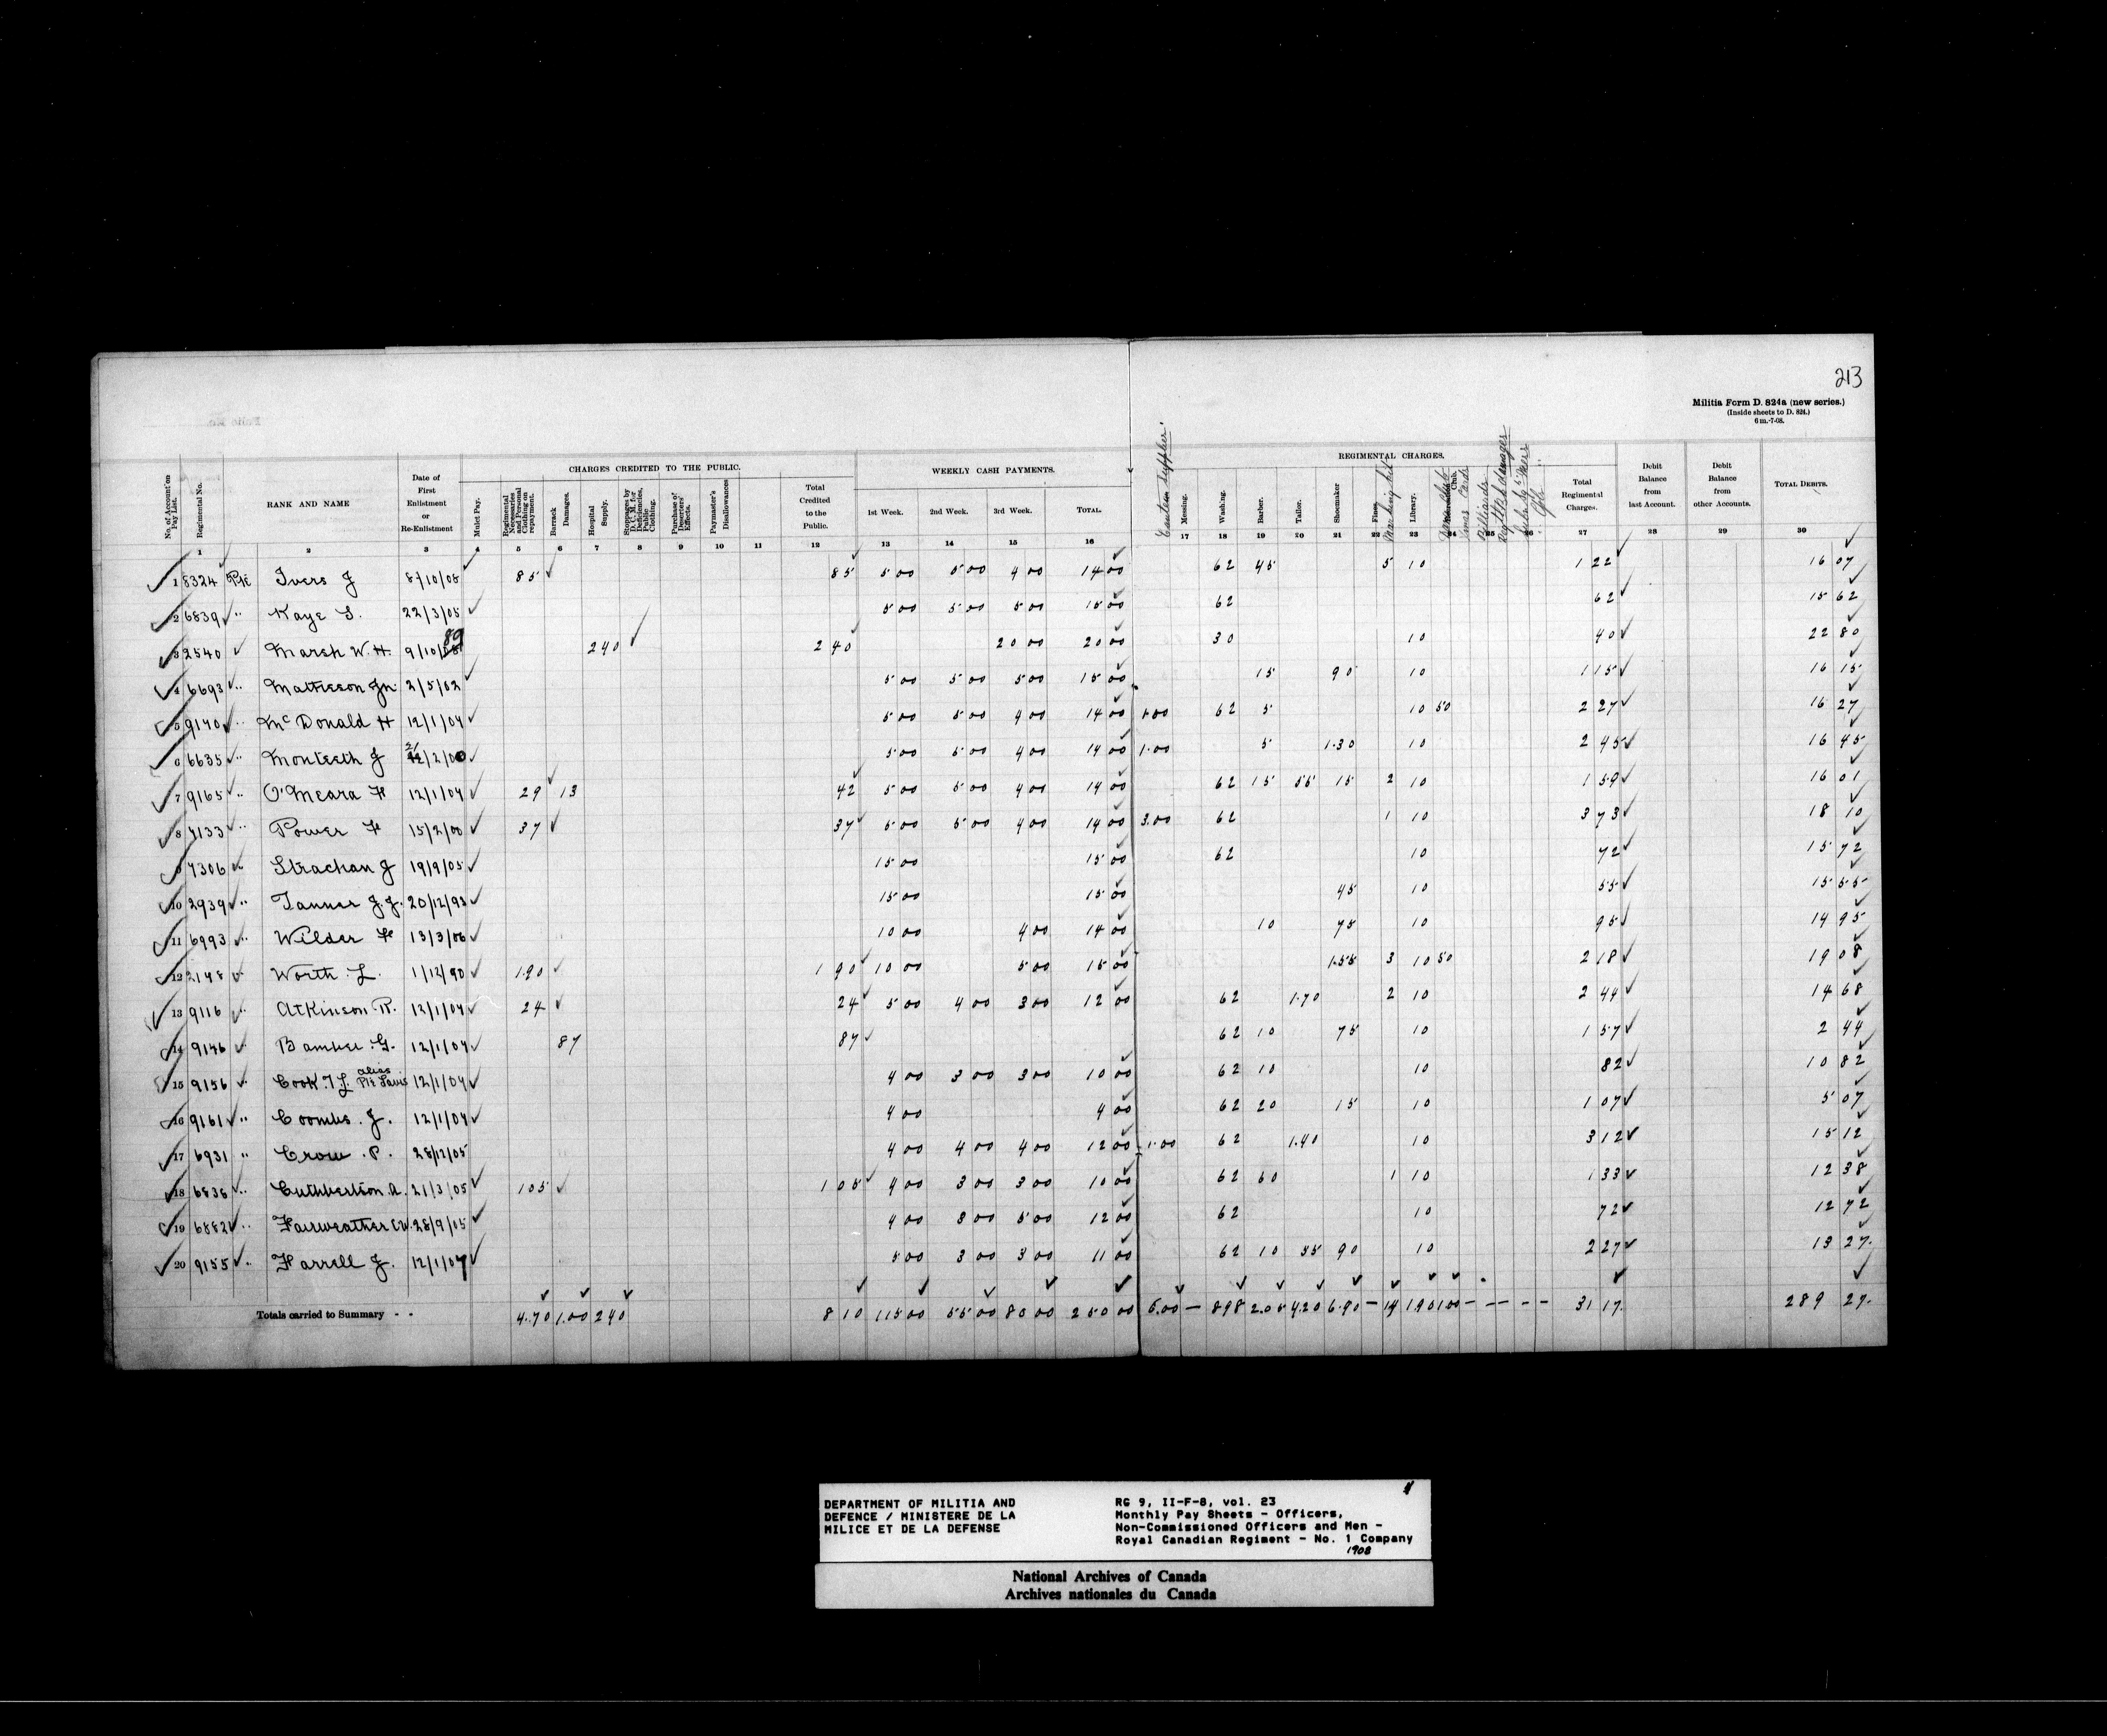 213
Militia Form D. 824a (new series.)
(Inside sheets to D. 824.)
6 m.-7-08.
CHARGES CREDITED TO THE PUBLIC.
WEEKLY CASH PAYMENTS.
REGIMENTAL CHARGES.
No. of Account on Pay List.
Regimental No.
RANK AND NAME
Date of First Enlistment or Re-Enlistment
Mulct Pay.
Regimental Necessaries and Personal Clothing on repayment.
Barrack Damages.
Hospital Supply.
Stoppages by D.C.M. for Deficiencies, Public Clothing.
Purchase of Deserters' Effects.
Paymaster's Disallowances
Total Credited to the Public.
1st Week.
2nd Week.
3rd Week.
TOTAL.
Canteen Supper
Messing.
Washing.
Barber.
Tailor.
Shoemaker
Fines
Marking kit
Library.
Club.
Xmas Cards
Billiards
damages
Total Regimental Charges.
Debit Balance from last Account.
Debit Balance from other Accounts.
TOTAL DEBITS.
1 2 3 4 5 6 7 8 9 10 11 12 13 14 15 16 17 18 19 20 21 22 23 24 25 26 27 28 29 30
1 8324 Pte Ivers J 8/10/08 85 85 5 00 5 00 4 00 14 00 62 45 5 10 1 22 16 07
2 6839 " Kaye S. 22/3/05 5 00 5 00 5 00 15 00 62 62 15 62
3 2540 Marsh W. H. 9/10/89 2 40 2 40 20 00 20 00 30 10 40 22 80
4 6693 " Mattieson Jn. 2/5/02 5 00 5 00 5 00 15 00 15 90 10 1 15 16 15
5 9140 " McDonald H 12/1/04 5 00 5 00 4 00 14 00 1.00 62 5 10 50 2 27 16 27
6 6635 " Monteeth J 21/2/00 5 00 5 00 4 00 14 00 1.00 5 1.30 10 2 45 16 45
7 9165 " O'Meara F 12/1/04 29 13 42 5 00 5 00 4 00 14 00 62 15 55 15 2 10 1 59 16 01
8 7133 " Power F 15/2/00 37 37 5 00 5 00 4 00 14 00 3.00 62 1 10 3 73 18 10
9 7306 " Strachan J 19/9/05 15 00 15 00 62 10 72 15 72
10 2939 " Tanner J. J. 20/12/93 15 00 15 00 45 10 55 15 55
11 6993 " Wilder F 13/3/06 10 00 4 00 14 00 10 75 10 95 14 95
12 2148 " Worth L. 1/12/90 1.90 1 90 10 00 5 00 15 00 1.55 3 10 50 2 18 19 08
13 9116 " Atkinson R. 12/1/04 24 24 5 00 4 00 3 00 12 00 62 1.70 2 10 2 44 14 68
14 9146 " Bamber G. 12/1/04 87 87 62 10 75 10 1 57 2 44
15 9156 " Cook T L. alias Pte Davis 12/1/04 4 00 3 00 3 00 10 00 62 10 10 82 10 82
16 9161 " Coombs J. 12/1/04 4 00 4 00 62 20 15 10 1 07 5 07
17 6931 " Crow P. 28/12/05 4 00 4 00 4 00 12 00 1.00 62 1.40 10 3 12 15 12
18 6836 " Cuthbertson A. 21/3/05 1 05 1 05 4 00 3 00 3 00 10 00 62 60 1 10 1 33 12 38
19 6882 " Fairweather C W. 28/9/05 4 00 3 00 5 00 12 00 62 10 72 12 72
20 9155 " Farrell J. 12/1/04 5 00 3 00 3 00 11 00 62 10 55 90 10 2 27 13 27
Totals carried to Summary - - 4.70 1.00 2 40 8 10 115 00 55 00 80 00 250 00 6.00 — 8 98 2.05 4.20 6.90 — 14 1.90 1.00 — — — — 31 17 289 27
DEPARTMENT OF MILITIA AND
DEFENCE / MINISTERE DE LA
MILICE ET DE LA DEFENSE
RG 9, II-F-8, vol. 23
Monthly Pay Sheets - Officers,
Non-Commissioned Officers and Men -
Royal Canadian Regiment - No. 1 Company
1908
National Archives of Canada
Archives nationales du Canada